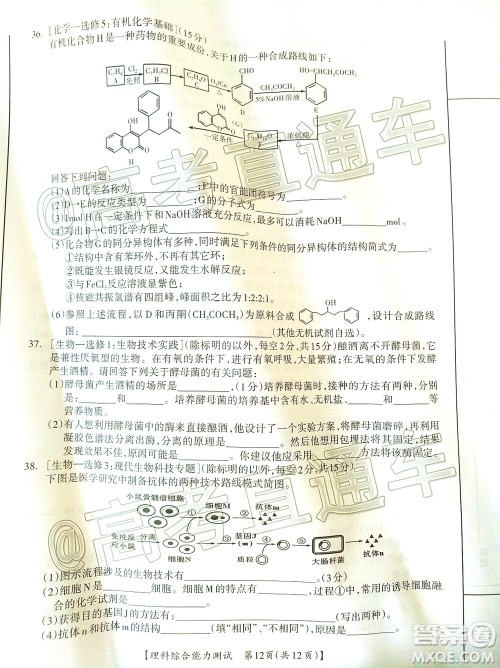 36. [化学—选修5:有机化学基础](15分)
有机化合物H是一种药物的重要成份,关于H的一种合成路线如下:
Cl₂
光照
A
B
C
CHO
CH₃COCH₃
5%NaOH溶液
D
OH
E
浓硫酸
(G)
一定条件
H
回答下列问题:
(1)A的化学名称为 ;F中的官能团符号为 。
(2)D→E的反应类型为 ;G的分子式为 。
(3)1mol H在一定条件下和NaOH溶液充分反应,最多消耗NaOH mol。
(4)写出B→C的化学方程式 。
(5)化合物G的同分异构体有多种,同时满足下列条件的同分异构体的结构简式为 。
①结构中含有苯环,不再有其它环;
②既能发生银镜反应,又能发生水解反应;
③与FeCl₃反应溶液显紫色;
④核磁共振氢谱有四组峰,峰面积比为1:2:2:1。
(6)参照上述流程,以D和丙酮(CH₃COCH₃)为原料合成 ,设计合成路线
图: (其他无机试剂自选)。
37. [生物—选修1:生物技术实践](除标明的以外,每空2分,共15分)人们离不开酵母菌,它
是兼性厌氧型的生物。在有氧的条件下,进行有氧呼吸,大量繁殖;在无氧的条件下,发酵
产生酒精。请回答下列有关酵母菌的问题:
(1)酵母菌产生酒精的场所是 ,培养酵母菌时,接种的方法有两种,分别是
和 。培养酵母菌的培养基中含有水、无机盐、 和 等
营养物质。
(2)有人想利用酵母菌中的酶来直接酿酒,他设计了一个实验方案,将酵母菌磨碎,再利用
凝胶色谱法分离出酶,分离的原理是 。获得酶后,为了能反复利用,可采用
的方法,即 。
38. [生物—选修3:现代生物科技专题](除标明的以外,每空2分,共15分)
下图是医学研究中制备抗体的两种技术路线模式简图。
小鼠骨髓瘤细胞
细胞M
抗体m
免疫反
应小鼠
细胞N
基因J
质粒
大肠杆菌
抗体n
(1)图示流程涉及的生物技术有 。(3分)
(2)细胞N是 。细胞M的特点有 ,常用的诱导细胞融
合的化学试剂是 。
(3)获得目的基因J的方法有: (写两种)。
(4)抗体m和抗体n的结构
【理科综合能力测试 第12页(共12页)】
高考直通车
@高考直通车